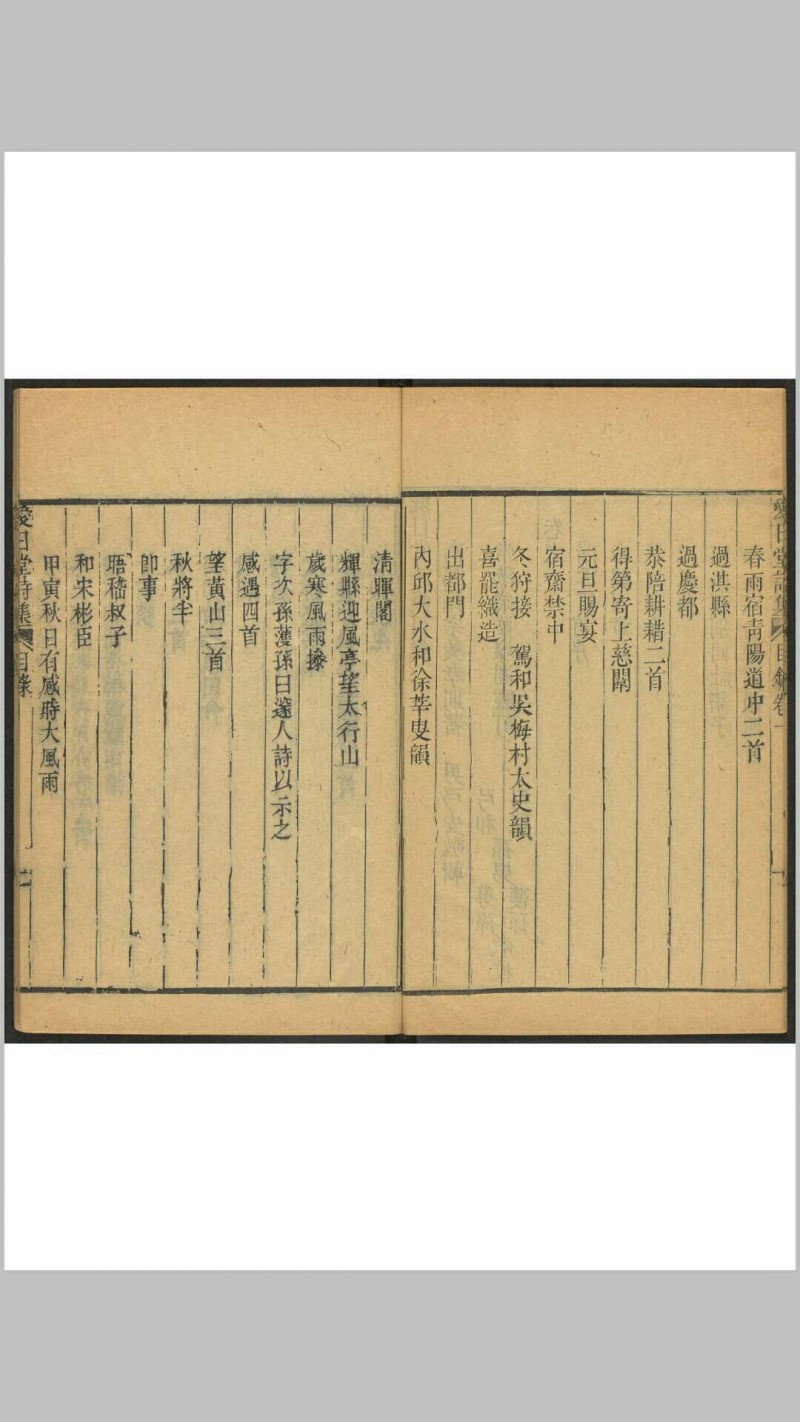 春雨宿青陽道中二首
過淇縣
過慶都
恭陪耕耤二首
得第寄上慈闈
元旦賜宴
宿齋禁中
冬狩接　駕和吳梅村太史韻
喜罷織造
出都門
內邱大水和徐莘叟韻
清暉閣
輝縣迎風亭望太行山
歲寒風雨摻
字次孫蒦孫曰邃人詩以示之
感遇四首
望黃山三首
秋將半
即事
晤嵇叔子
和宋彬臣
甲寅秋日有感時大風雨
愛日堂詩集 目錄